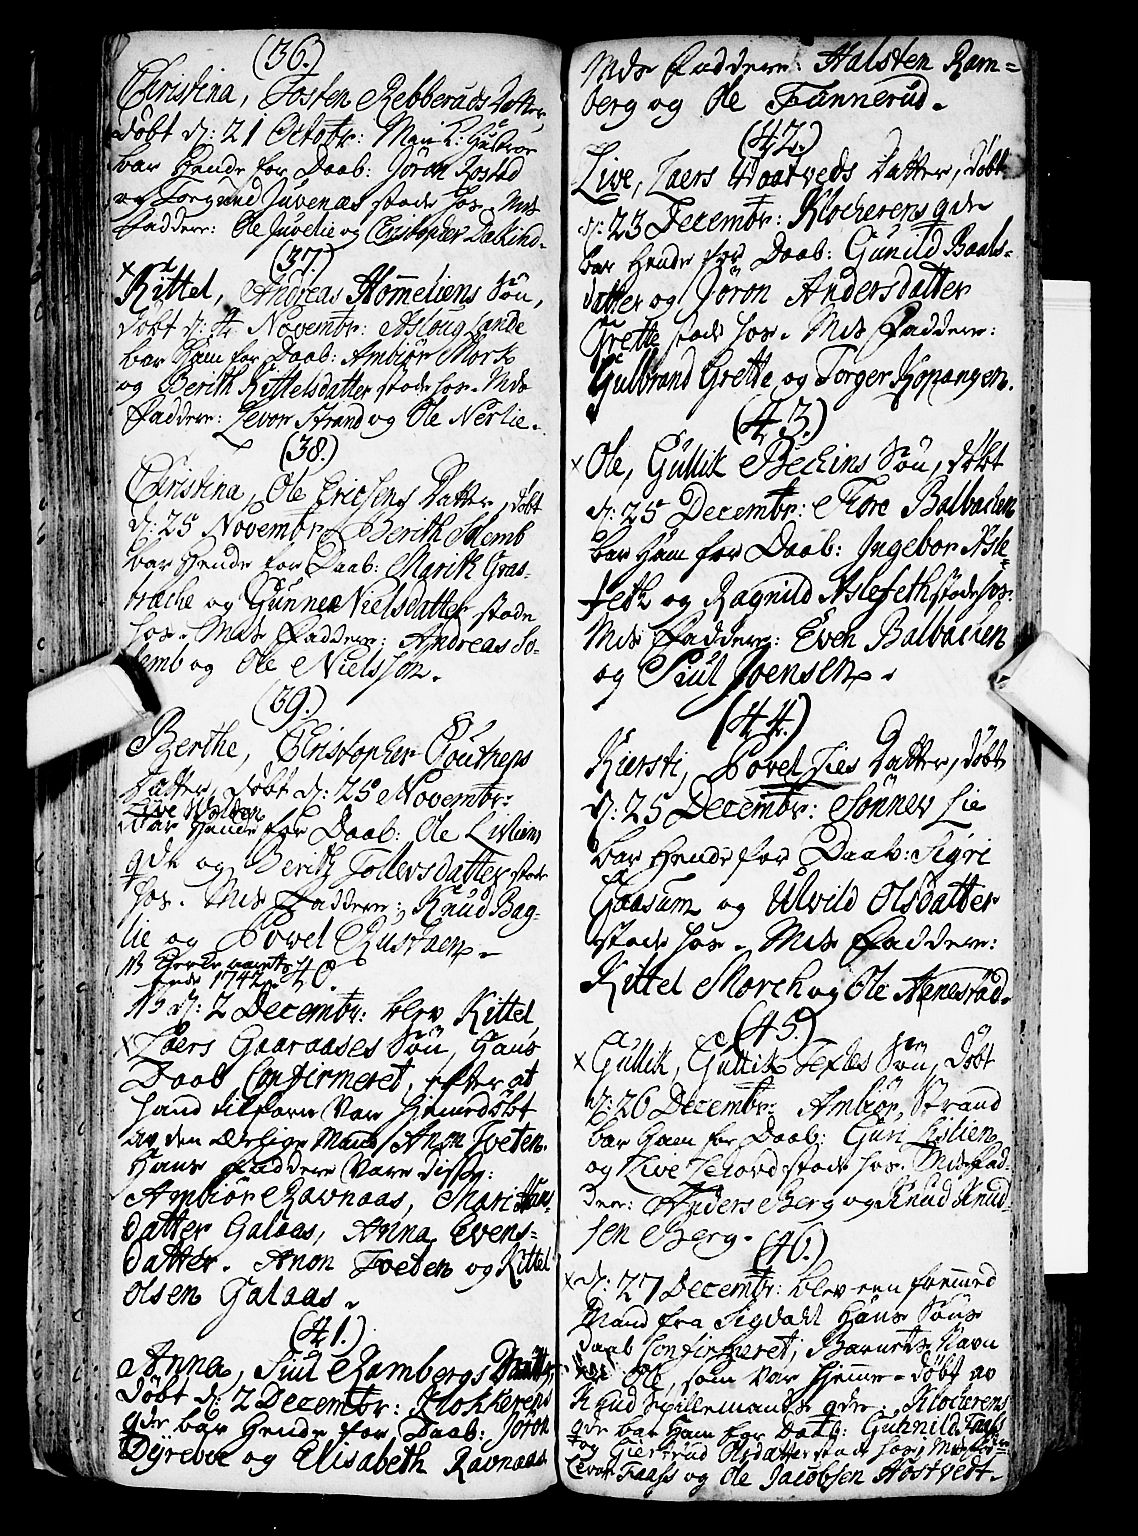 (36.)
Christina, Tosten Rebberuds Datter,
Døbt d: 21 Octobr: Mari
bar Hende for Daab: Jöran Rostad
og Torgund Juvenæs stode hos. Mds
Faddere: Ole Juvelie og Christopher Dalkind.
(37.)
Kittel, Andreas Homeliens Søn,
Døbt d: 4 Novembr: Asloug Lande
bar Ham for Daab: Ambiör Mork
og Berith Kittelsdatter stode hos. Mds
Faddere: Levor Strand og Ole Nerlie.
(38.)
Christina, Ole Ericsens Datter, døbt
d: 25 Novembr: Berith Solemb
bar Hende for Daab: Marith Gras-
og Gunner Nielsdatter stode
hos. Mds Faddere: Andreas So-
lemb og Ole Nielsson.
(39.)
Berthe, Christopher
Datter, Døbt d: 25 Novembr:
Live Wolden
bar Hende for Daab: Ole Lisliens
qde og Berith Tollevsdatter stode
hos. Mds Faddere: Knud Bag-
lie og Povel Rustaen.
1742. 40.
d: 2 Decembr: blev Kittel,
Laers Gaaraases Søn, Hans
Daab Confirmeret, efter at
hand tilforn var hjemedöbt
av den Ærlige Mand Anon Tveten.
Hans Faddere vare disse:
Ambiör Ravnaas, Mari Hans-
datter Galaas, Anna Evens-
datter. Anon Tveten og Kittel
Olsen Galaas.
(41.)
Anna, Siul Rambergs Datter,
Døbt d: 2 Decembr: Klokkerens
qde bar Hende for Daab: Joron
Dyreboe og Elisabeth Ravnaas
Mds Faddere: Halsten Ram-
berg og Ole Funnerud.
(42.)
Live, Laers Waatveds Datter, Døbt
d: 23 Decembr: Klockerens qde
bar Hende for Daab: Gunild Baals-
datter og Jöron Andersdatter
Grette stode hos. Mds Faddere:
Gulbrand Grette og Torger Kopangen.
(43.)
Ole, Gullik Beckins Søn, døbt
d: 25 Decembr: Tore Balbacken
bar Ham for Daab: Ingebor Asle-
feth og Ragnild Aslefeth stode hos.
Mds Faddere: Even Balbacken
og Siul Joensen.
(44.)
Kiersti, Povel Lies Datter, døbt
d: 25 Decembr: Sönnev Lie
bar Hende for Daab: Sigri
Gaasum og Ulvild Olsdatter
stode hos. Mds Faddere:
Kittel Morch og Ole Agnesrud.
(45.)
Gullik, Gullik Teples Søn, Døbt
d: 26 Decembr: Ambiör Strand
bar Ham for Daab: Guri Lislien
og Live Lehovd stode hos. Mds Fad-
dere: Anders Berg og Knud Knud-
sen Berg.
(46.)
d: 27 Decembr: blev een fremmed
Mand fra Sigdahl Hans Söns
Daab Confirmeret; Barnets Navn
var Ole, som var hjemme-döbt av
Knud Spillemands qde. Klockerens
qde bar Ham for Daab: Gunnild Faass
og Giertrud Olsdatter stode hos. Mds Faddere:
Levor Faass og Ole Jacobsen Hostvedt.